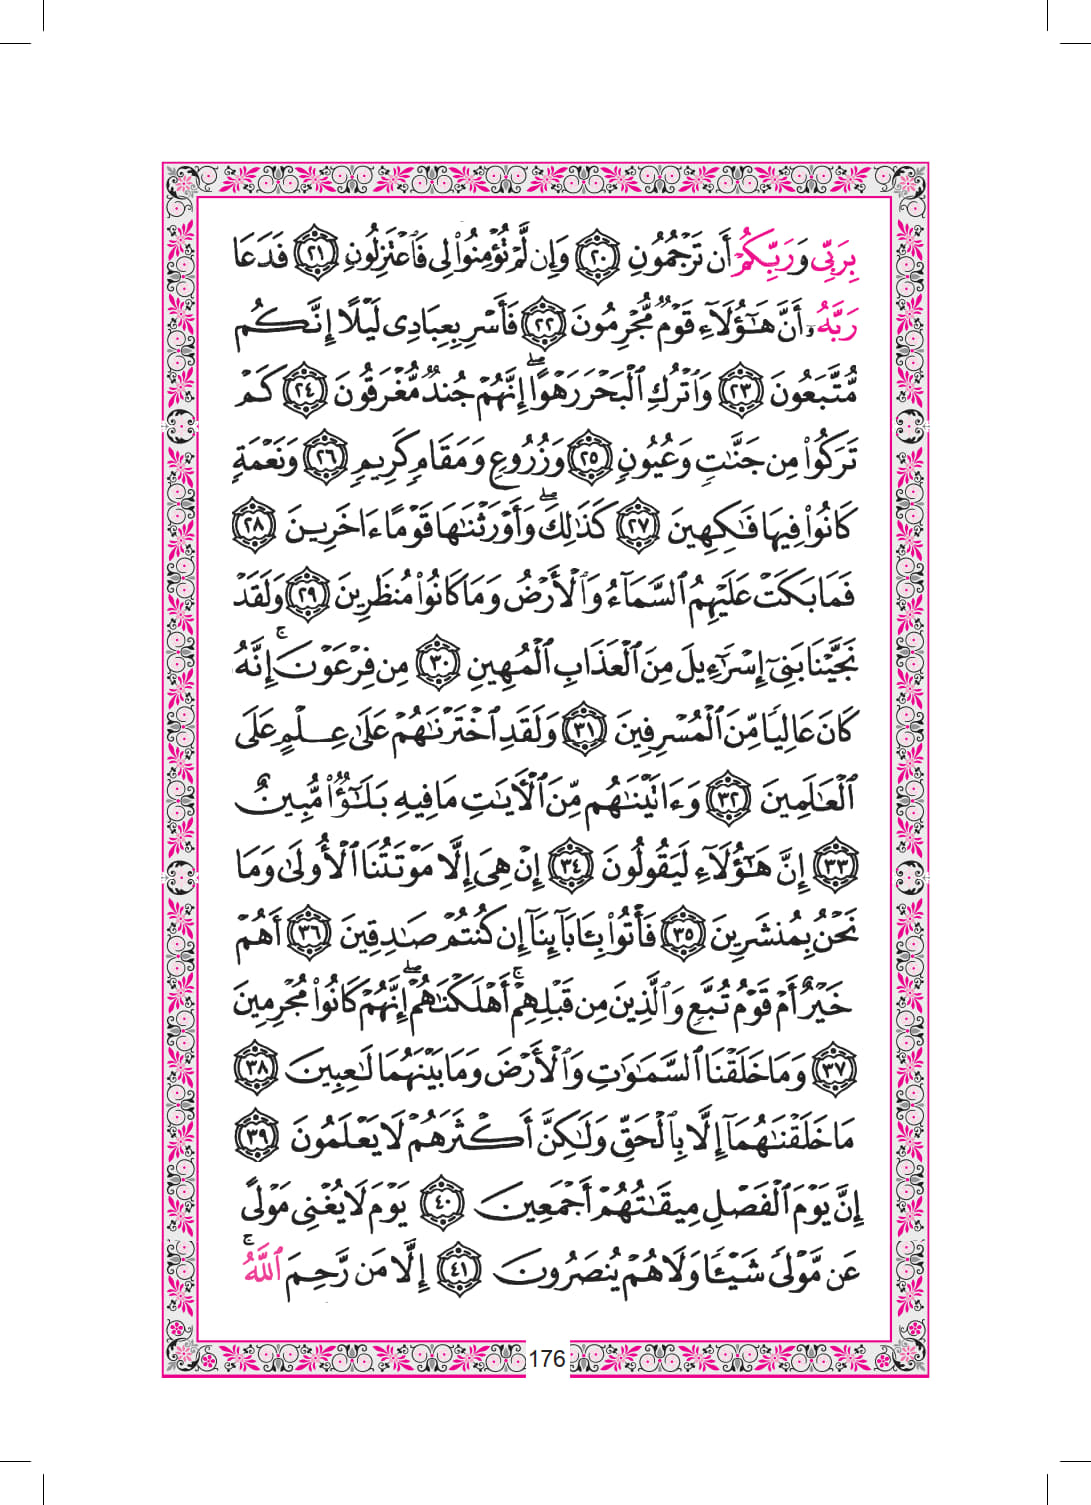 بِرَبِّي وَرَبِّكُمْ أَن تَرْجُمُونِ ﴿٢٠﴾ وَإِن لَّمْ تُؤْمِنُوا۟ لِى فَٱعْتَزِلُونِ ﴿٢١﴾ فَدَعَا
رَبَّهُۥٓ أَنَّ هَـٰٓؤُلَآءِ قَوْمٌ مُّجْرِمُونَ ﴿٢٢﴾ فَأَسْرِ بِعِبَادِى لَيْلًا إِنَّكُم
مُّتَّبَعُونَ ﴿٢٣﴾ وَٱتْرُكِ ٱلْبَحْرَ رَهْوًا ۖ إِنَّهُمْ جُندٌ مُّغْرَقُونَ ﴿٢٤﴾ كَمْ
تَرَكُوا۟ مِن جَنَّـٰتٍ وَعُيُونٍ ﴿٢٥﴾ وَزُرُوعٍ وَمَقَامٍ كَرِيمٍ ﴿٢٦﴾ وَنَعْمَةٍ
كَانُوا۟ فِيهَا فَـٰكِهِينَ ﴿٢٧﴾ كَذَٰلِكَ ۖ وَأَوْرَثْنَـٰهَا قَوْمًا ءَاخَرِينَ ﴿٢٨﴾
فَمَا بَكَتْ عَلَيْهِمُ ٱلسَّمَآءُ وَٱلْأَرْضُ وَمَا كَانُوا۟ مُنظَرِينَ ﴿٢٩﴾ وَلَقَدْ
نَجَّيْنَا بَنِىٓ إِسْرَٰٓءِيلَ مِنَ ٱلْعَذَابِ ٱلْمُهِينِ ﴿٣٠﴾ مِن فِرْعَوْنَ ۚ إِنَّهُۥ
كَانَ عَالِيًا مِّنَ ٱلْمُسْرِفِينَ ﴿٣١﴾ وَلَقَدِ ٱخْتَرْنَـٰهُمْ عَلَىٰ عِلْمٍ عَلَى
ٱلْعَـٰلَمِينَ ﴿٣٢﴾ وَءَاتَيْنَـٰهُم مِّنَ ٱلْـَٔايَـٰتِ مَا فِيهِ بَلَـٰٓؤٌا۟ مُّبِينٌ
﴿٣٣﴾ إِنَّ هَـٰٓؤُلَآءِ لَيَقُولُونَ ﴿٣٤﴾ إِنْ هِىَ إِلَّا مَوْتَتُنَا ٱلْأُولَىٰ وَمَا
نَحْنُ بِمُنشَرِينَ ﴿٣٥﴾ فَأْتُوا۟ بِـَٔابَآئِنَآ إِن كُنتُمْ صَـٰدِقِينَ ﴿٣٦﴾ أَهُمْ
خَيْرٌ أَمْ قَوْمُ تُبَّعٍ وَٱلَّذِينَ مِن قَبْلِهِمْ ۚ أَهْلَكْنَـٰهُمْ ۖ إِنَّهُمْ كَانُوا۟ مُجْرِمِينَ
﴿٣٧﴾ وَمَا خَلَقْنَا ٱلسَّمَـٰوَٰتِ وَٱلْأَرْضَ وَمَا بَيْنَهُمَا لَـٰعِبِينَ ﴿٣٨﴾
مَا خَلَقْنَـٰهُمَآ إِلَّا بِٱلْحَقِّ وَلَـٰكِنَّ أَكْثَرَهُمْ لَا يَعْلَمُونَ ﴿٣٩﴾
إِنَّ يَوْمَ ٱلْفَصْلِ مِيقَـٰتُهُمْ أَجْمَعِينَ ﴿٤٠﴾ يَوْمَ لَا يُغْنِى مَوْلًى
عَن مَّوْلًى شَيْـًٔا وَلَا هُمْ يُنصَرُونَ ﴿٤١﴾ إِلَّا مَن رَّحِمَ ٱللَّهُ ۚ
176